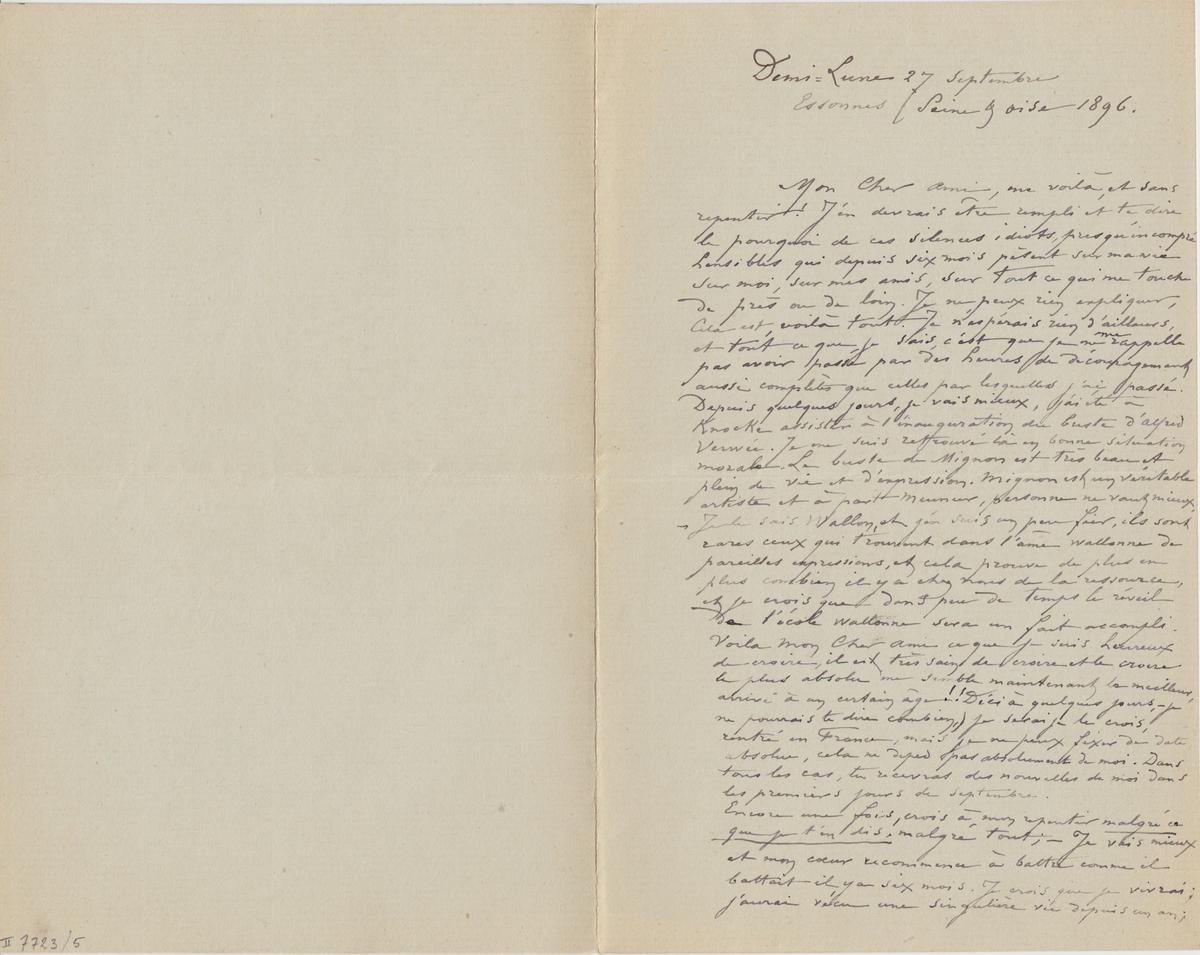 Demi=Lune 27 Septembre
Essonnes / Seine & oise 1896.
Mon Cher ami, me voilà, et sans
repentir! J'en devrais être rempli et te dire
le pourquoi de ces silences idiots, presqu'incompré
hensibles qui depuis six mois pèsent sur ma vie
sur moi, sur mes amis, sur tout ce qui me touche
de près ou de loin. Je ne peux rien expliquer,
Cela est, voilà tout. Je n'espérais rien d'ailleurs,
et tout ce que je sais, c'est que je ne me rappelle
pas avoir passé par des heures de découragement
aussi complètes que celles par lesquelles j'ai passé.
Depuis quelques jours, je vais mieux, j'ai été à
Knocke assister à l'inauguration du buste d'Alfred
Verwée. Je me suis retrouvé là en bonne situation
morale. Le buste de Mignon est très beau et
plein de vie et d'expression. Mignon est un véritable
artiste et à part Meunier, personne ne vaut mieux.
Je le sais Wallon, et j'en suis un peu fier, ils sont
rares ceux qui trouvent dans l'âme wallonne de
pareilles expressions, et cela prouve de plus en
plus combien il y a chez nous de la ressource,
et je crois que dans peu de temps le réveil
De l'école wallonne sera un fait accompli.
Voila mon Cher ami ce que je suis heureux
de croire, il est très sain de croire et le croire
le plus absolu me semble maintenant le meilleur,
arrivé à un certain âge!! D'ici à quelques jours, – je
ne pourrais te dire combien,) je serai je le crois,
rentré en France, mais je ne peux fixer de date
absolue, cela ne déped pas absolument de moi. Dans
tous les cas, tu recevras des nouvelles de moi dans
les premiers jours de septembre.
Encore une fois, crois à mon repentir malgré ce
que je t'en dis, malgré tout; – Je vais mieux
et mon cœur recommence à battre comme il
battait il y a six mois. Je crois que je vivrai;
j'aurai vécu une singulière vie depuis un an;
II 7723/5